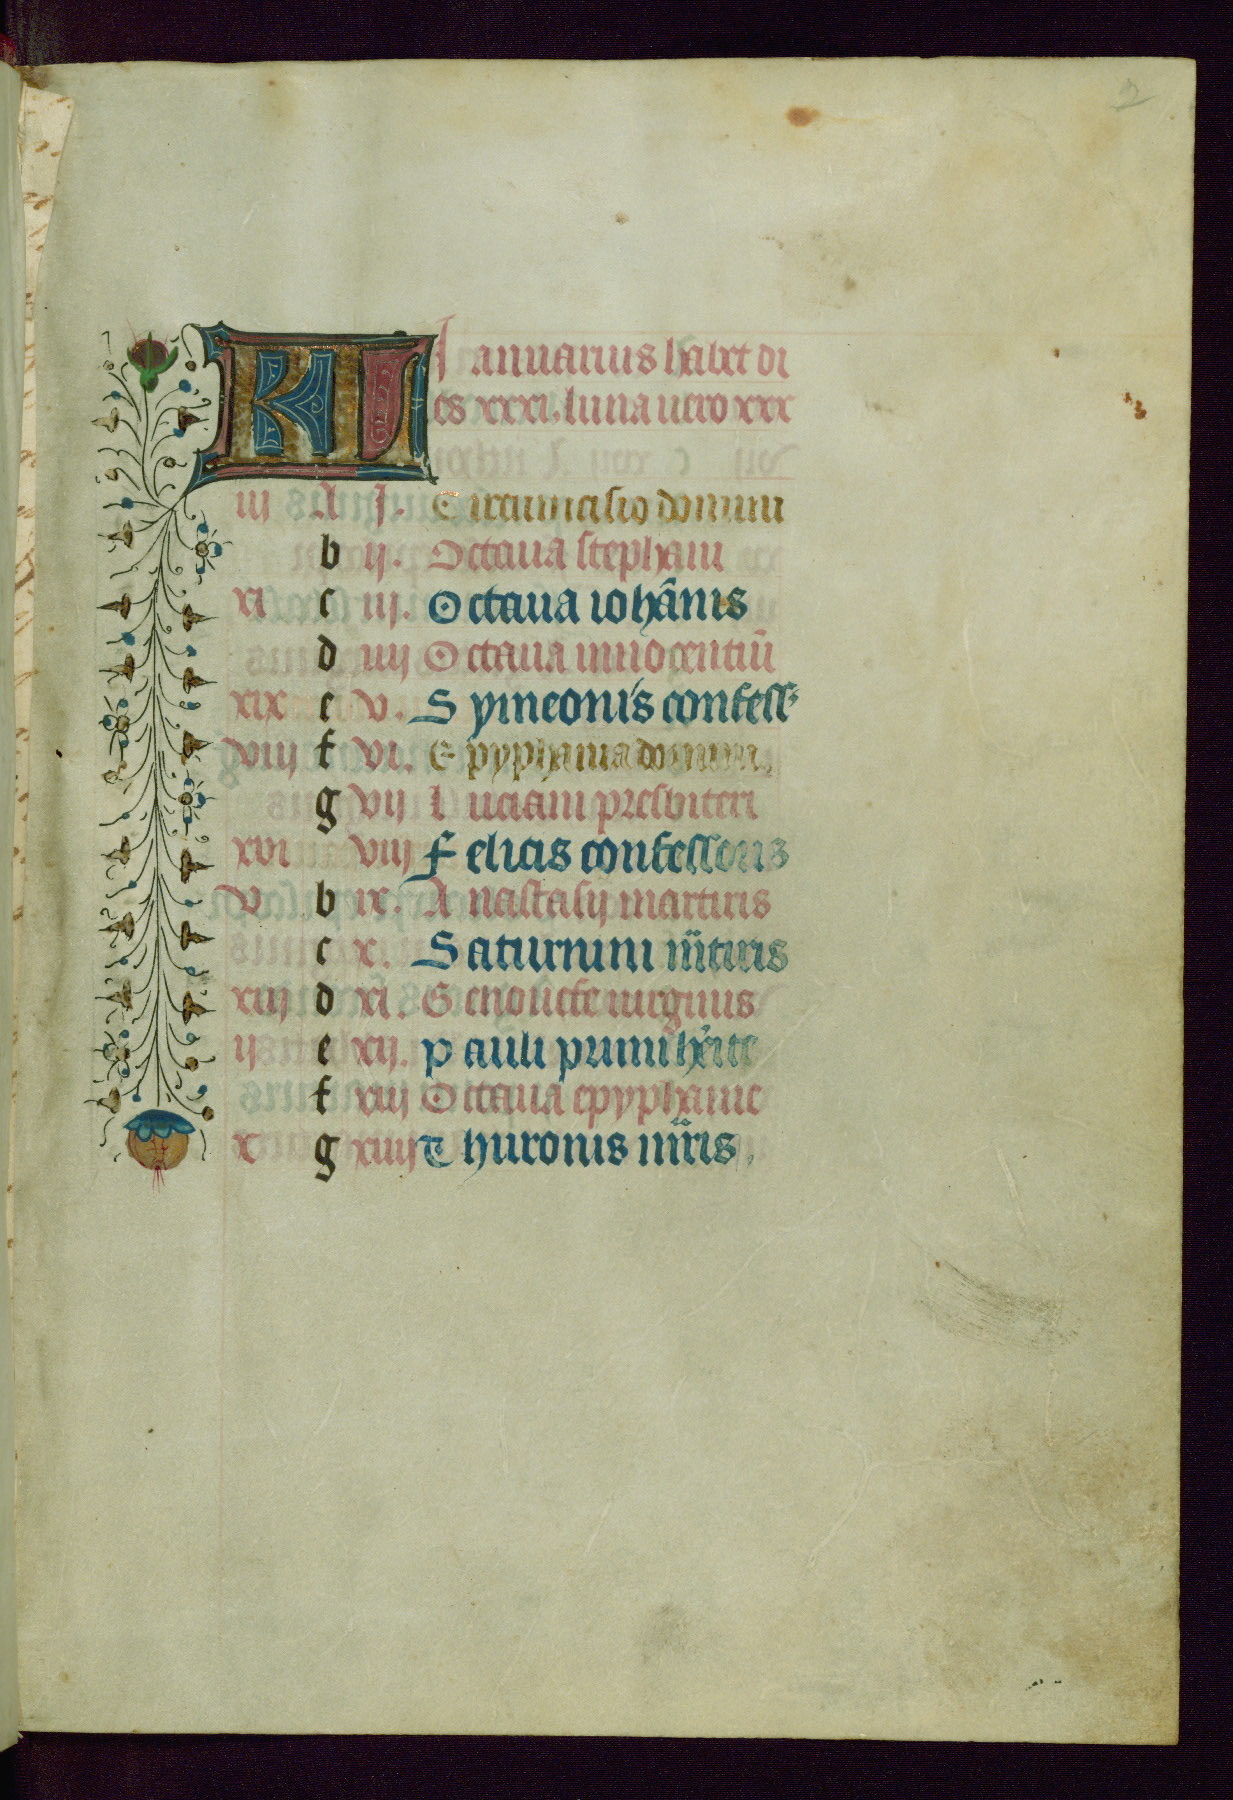 2
Kl Ianuarius habet di
es xxxi. luna uero xxx
iii A i. Circumcisio domini
b ij. Octaua stephani
xi c iij. Octaua iohānis
d iiij Octaua innocentiū
xix e v. Symeonis confess
viij f vi. Epyphania domini.
g vij Luciani presbiteri
xvi viij Felicis confessoris
v b ix. Anastasij martiris
c x. Saturnini m̄tiris
xiij d xi. Genouefe uirginis
ij e xij. Pauli primi h̓mite
f xiij Octaua epyphanie
x g xiiij Thuronis mr̄is.